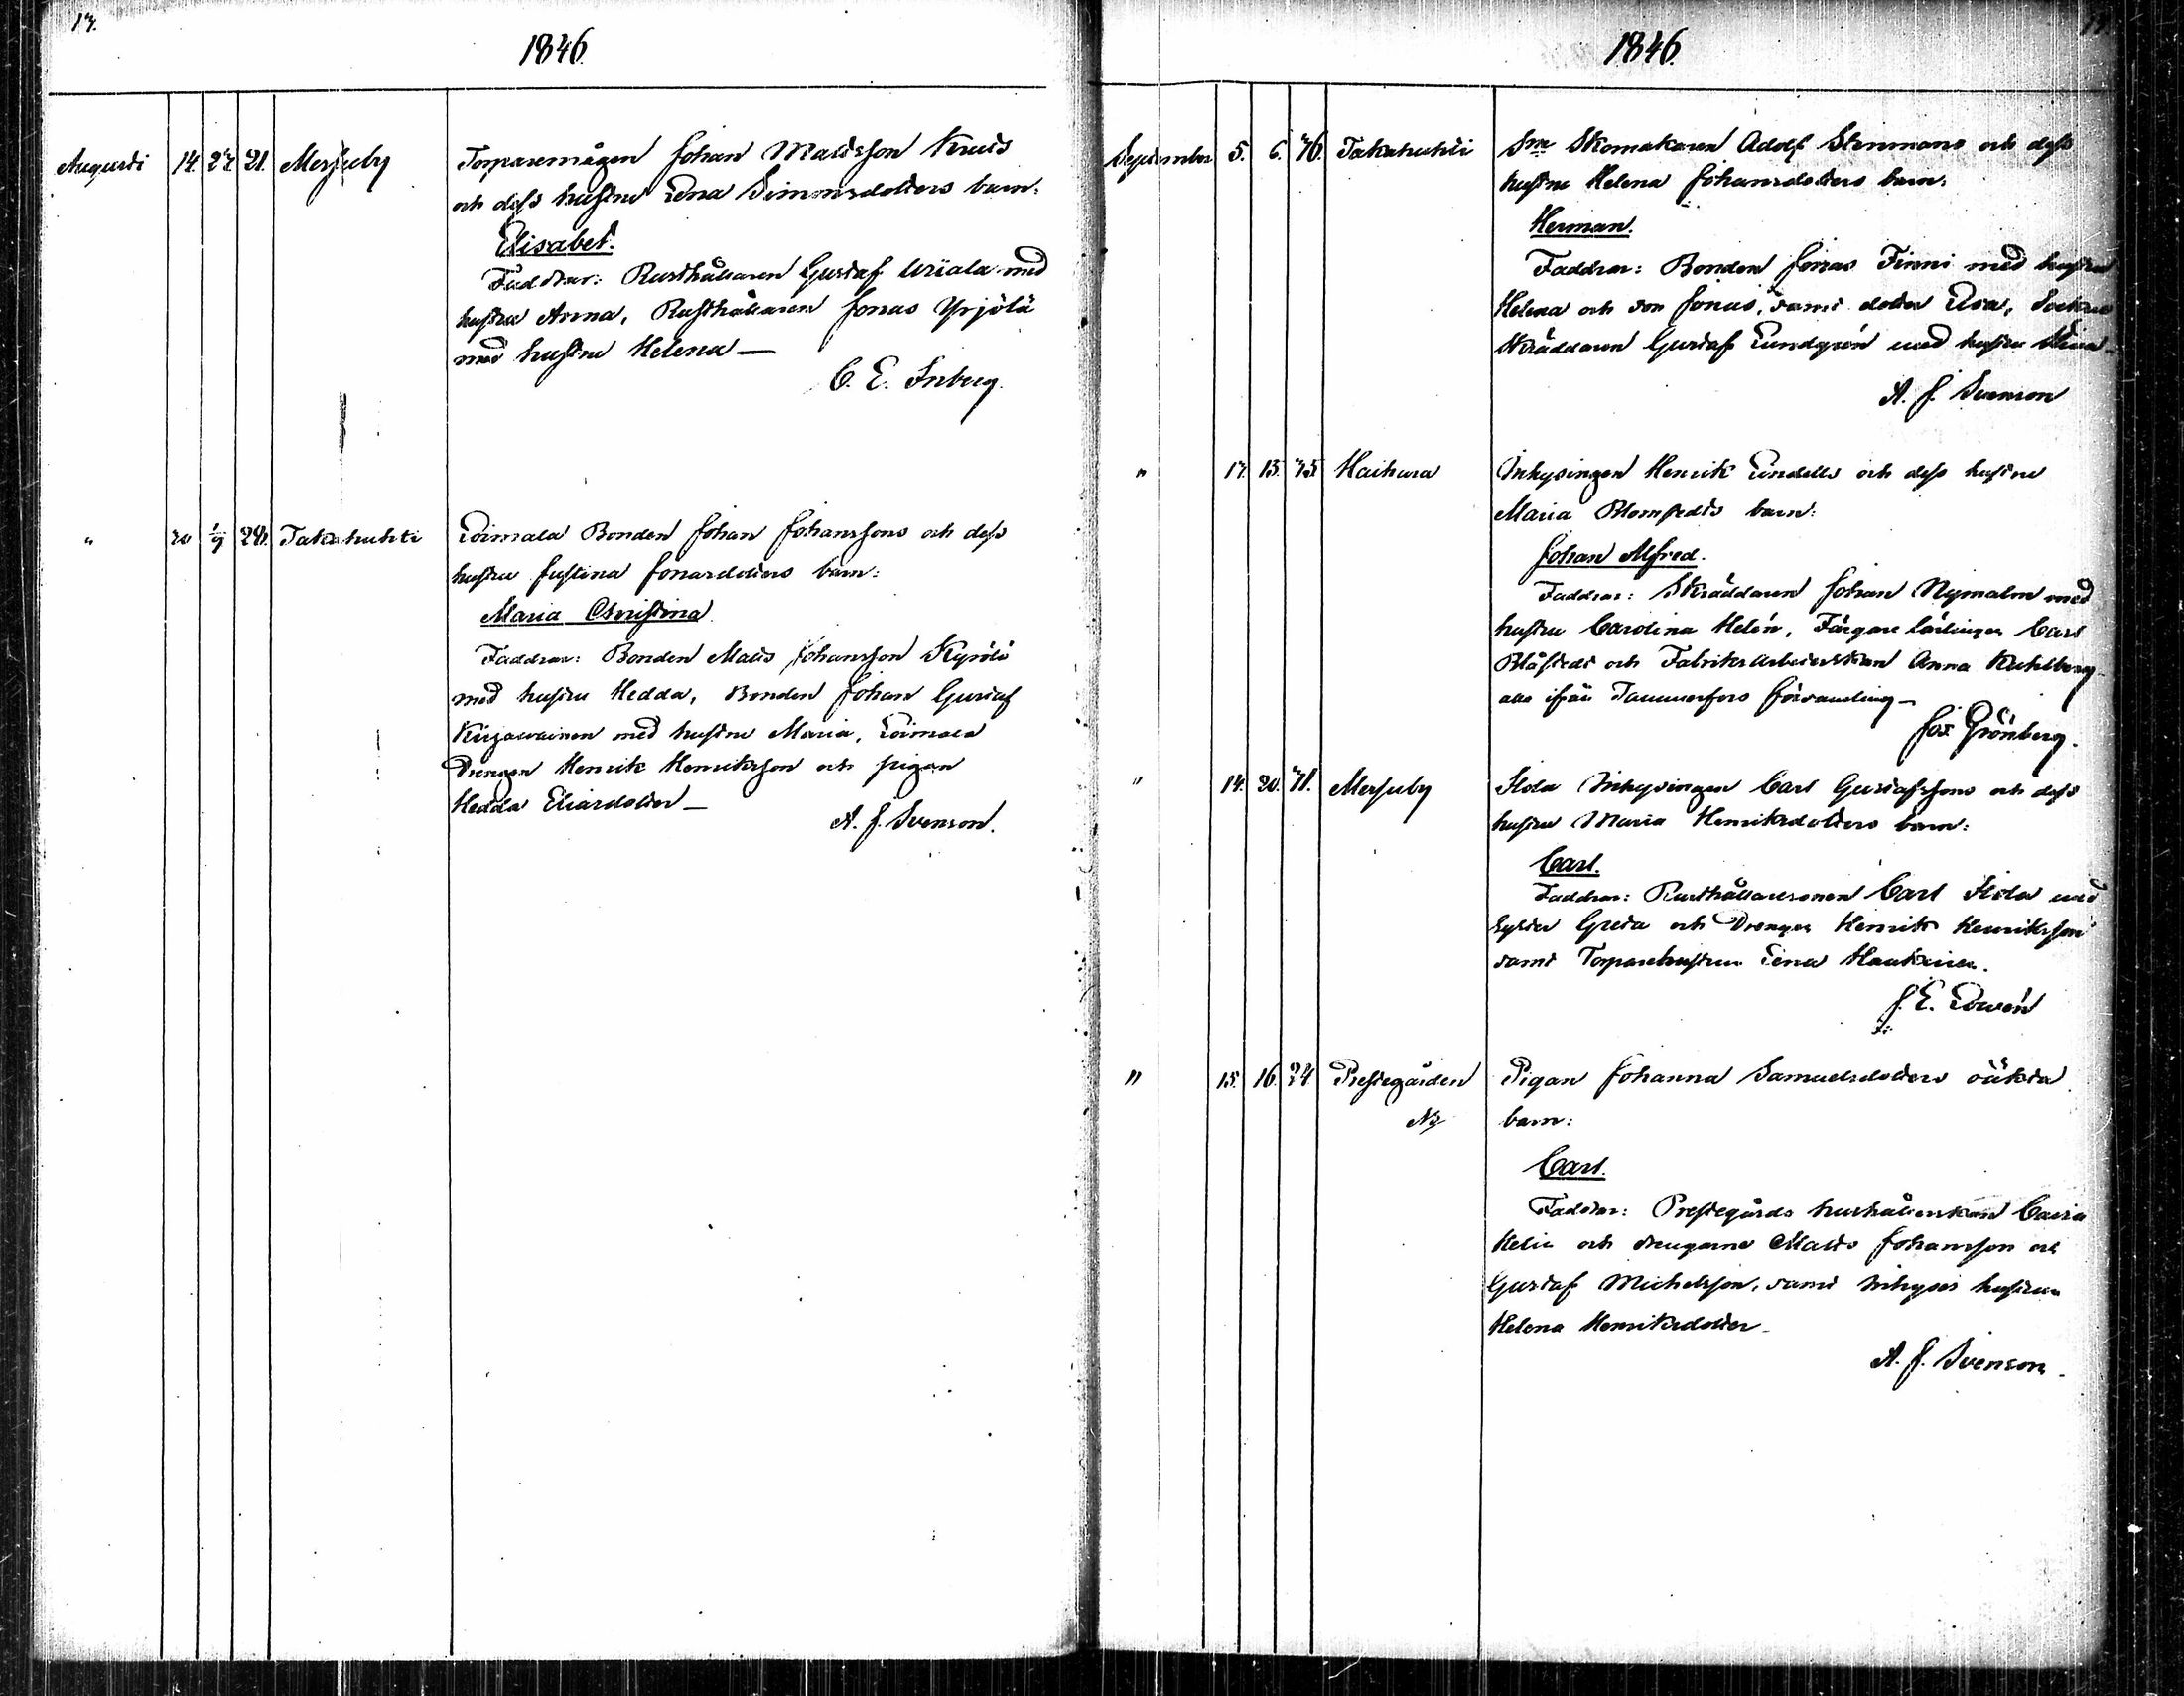 17.
1846.
Augusti 14. 27. 21. Messuby Torparemågen Johan Mattsson Knuts
och dess hustru Lena Simonsdotters barn:
Elisabet.
Faddrar: Rusthållaren Gustaf Uriala med
hustru Anna, Rusthållaren Jonas Yrjölä
med hustru Helena—
C. E. Inberg.
" 20 1/9 28. Takahuhti Loimala Bonden Johan Johanssons och dess
hustru Justina Jonasdotters barn:
Maria Christina.
Faddrar: Bonden Matts Johansson Kyrölä
med hustru Hedda, Bonden Johan Gustaf
med hustru Maria, Loimala
Drengen Henrik Henriksson och pigan
Hedda Eliasdotter—
A. J. Svenson.
1846.
September 5. 6. 76. Takahuhti Sme Skomakaren Adolf Stenmans och dess
hustru Helena Johansdotters barn:
Herman.
Faddrar: Bonden Jonas Finni med hustru
Helena och son Jonas, samt dotter Eva, Sockne
Skräddaren Gustaf Lundgrén med hustru Stina—
A. J. Svenson
" 17. 13. 75 Haihara Inhysingen Henrik Lindells och dess hustru
Maria Blomstedts barn:
Johan Alfred.
Faddrar: Skräddaren Johan Nymalm med
hustru Carolina Helén, Färgare lärlingen Carl
Blåfield och Fabriks Arbeterskan Anna Kahlberg
alla ifrån Tammerfors församling—
Jos. Grönberg.
" 14. 20. 71. Messuby Hola Inhysingen Carl Gustafssons och dess
hustru Maria Henriksdotters barn:
Carl.
Faddrar: Rusthållaresonen Carl Hola med
syster Greta och Drengen Henrik Henriksson
samt Torparehustrun Lena
J. E. Lowén
" 15. 16. 24. Prestegården Pigan Johanna Samuelsdotters oäkta
barn:
Carl.
Faddrar: Prestegårds hushållerskan Caisa
Helin och drengarne Matts Johansson och
Gustaf Michelsson, samt Inhyses hustrun
Helena Henriksdotter—
A. J. Svenson.